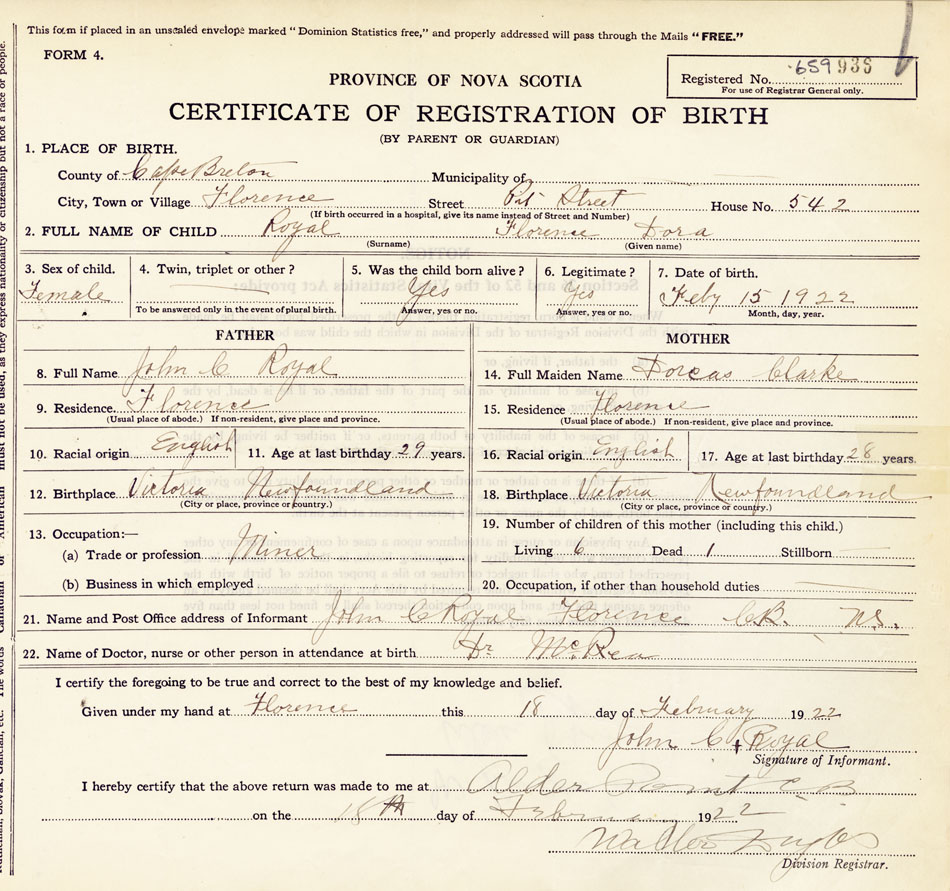 This form if placed in an unsealed envelope marked "Dominion Statistics free," and properly addressed will pass through the Mails "FREE."
FORM 4.
Registered No. 659936
For use of Registrar General only.
PROVINCE OF NOVA SCOTIA
CERTIFICATE OF REGISTRATION OF BIRTH
(BY PARENT OR GUARDIAN)
1. PLACE OF BIRTH.
County of Cape Breton Municipality of
City, Town or Village Florence Street Pit Street House No. 542
(If birth occurred in a hospital, give its name instead of Street and Number)
2. FULL NAME OF CHILD Royal Florence Dora
(Surname) (Given name)
3. Sex of child. 4. Twin, triplet or other? 5. Was the child born alive? 6. Legitimate? 7. Date of birth.
Female Yes Yes Feby 15 1922
To be answered only in the event of plural birth. Answer, yes or no. Answer, yes or no. Month, day, year.
FATHER MOTHER
8. Full Name John C Royal 14. Full Maiden Name Dorcas Clarke
9. Residence. Florence 15. Residence Florence
(Usual place of abode.) If non-resident, give place and province. (Usual place of abode.) If non-resident, give place and province.
10. Racial origin English 11. Age at last birthday 29 years. 16. Racial origin English 17. Age at last birthday 28 years.
12. Birthplace Victoria Newfoundland 18. Birthplace Victoria Newfoundland
(City or place, province or country.) (City or place, province or country.)
13. Occupation:— 19. Number of children of this mother (including this child.)
(a) Trade or profession Miner Living 6 Dead 1 Stillborn
(b) Business in which employed 20. Occupation, if other than household duties
21. Name and Post Office address of Informant John C Royal Florence C.B. N.S.
22. Name of Doctor, nurse or other person in attendance at birth Dr McRea
I certify the foregoing to be true and correct to the best of my knowledge and belief.
Given under my hand at Florence this 18 day of February 1922
John C + Royal
Signature of Informant.
I hereby certify that the above return was made to me at Alder Point C.B.
on the 18th day of February 1922
Walter
Division Registrar.